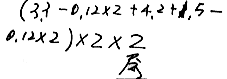 (3,3-0,12×2+4,2+1,5-
0,12×2)×2×2
层